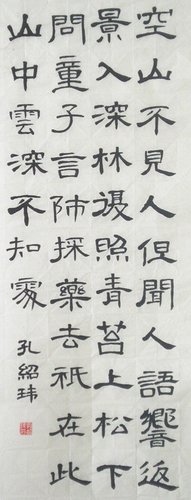 空山不見人但聞人語響返
景入深林復照青苔上松下
問童子言師採藥去祇在此
山中雲深不知處
孔紹瑋